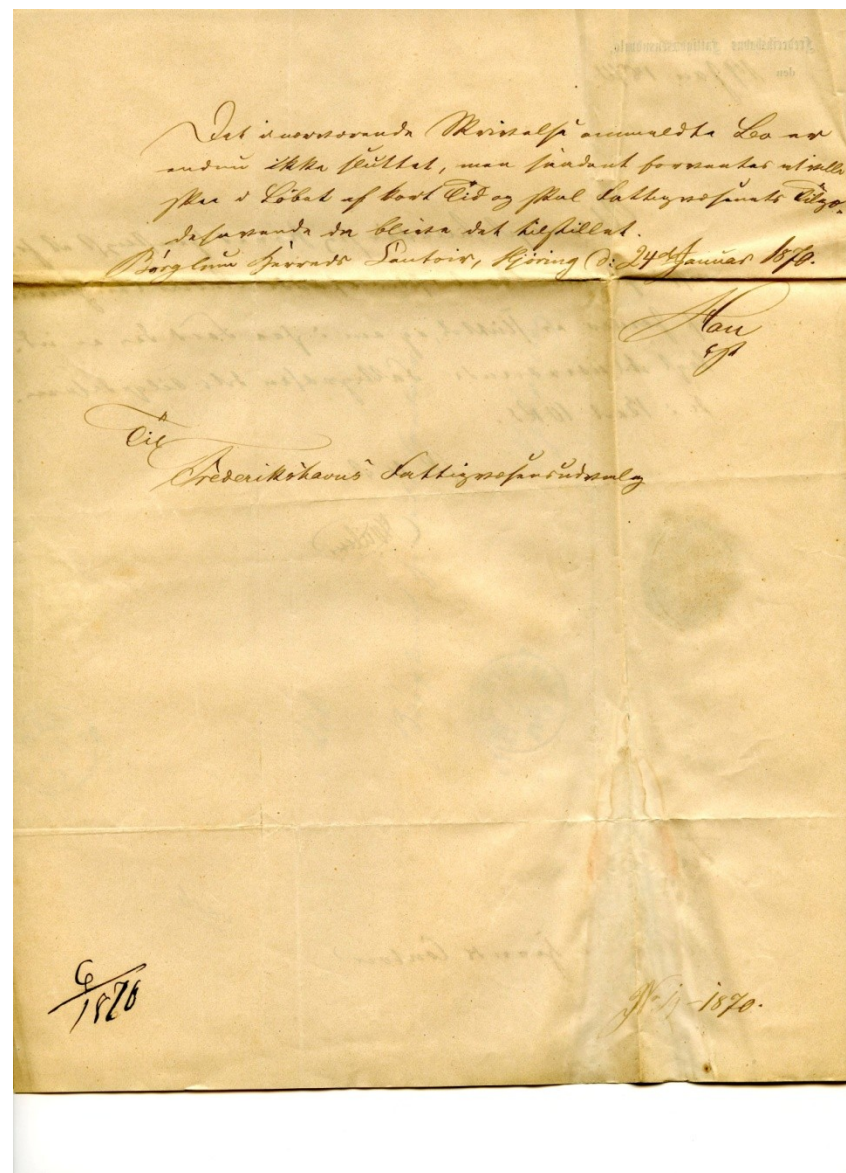 Det i nærværende Skrivelse ommeldte Bo er
endnu ikke sluttet, men saadant forventes at ville
skee i Løbet af kort Tid og skal Fattigvæsenets Tilgo-
dehavende da blive det tilstillet.
Børglum Herreds Contoir, Hjøring d: 24de Januar 1870.
Til
Frederikshavns Fattigvæsensudvalg
6/1870
1870.